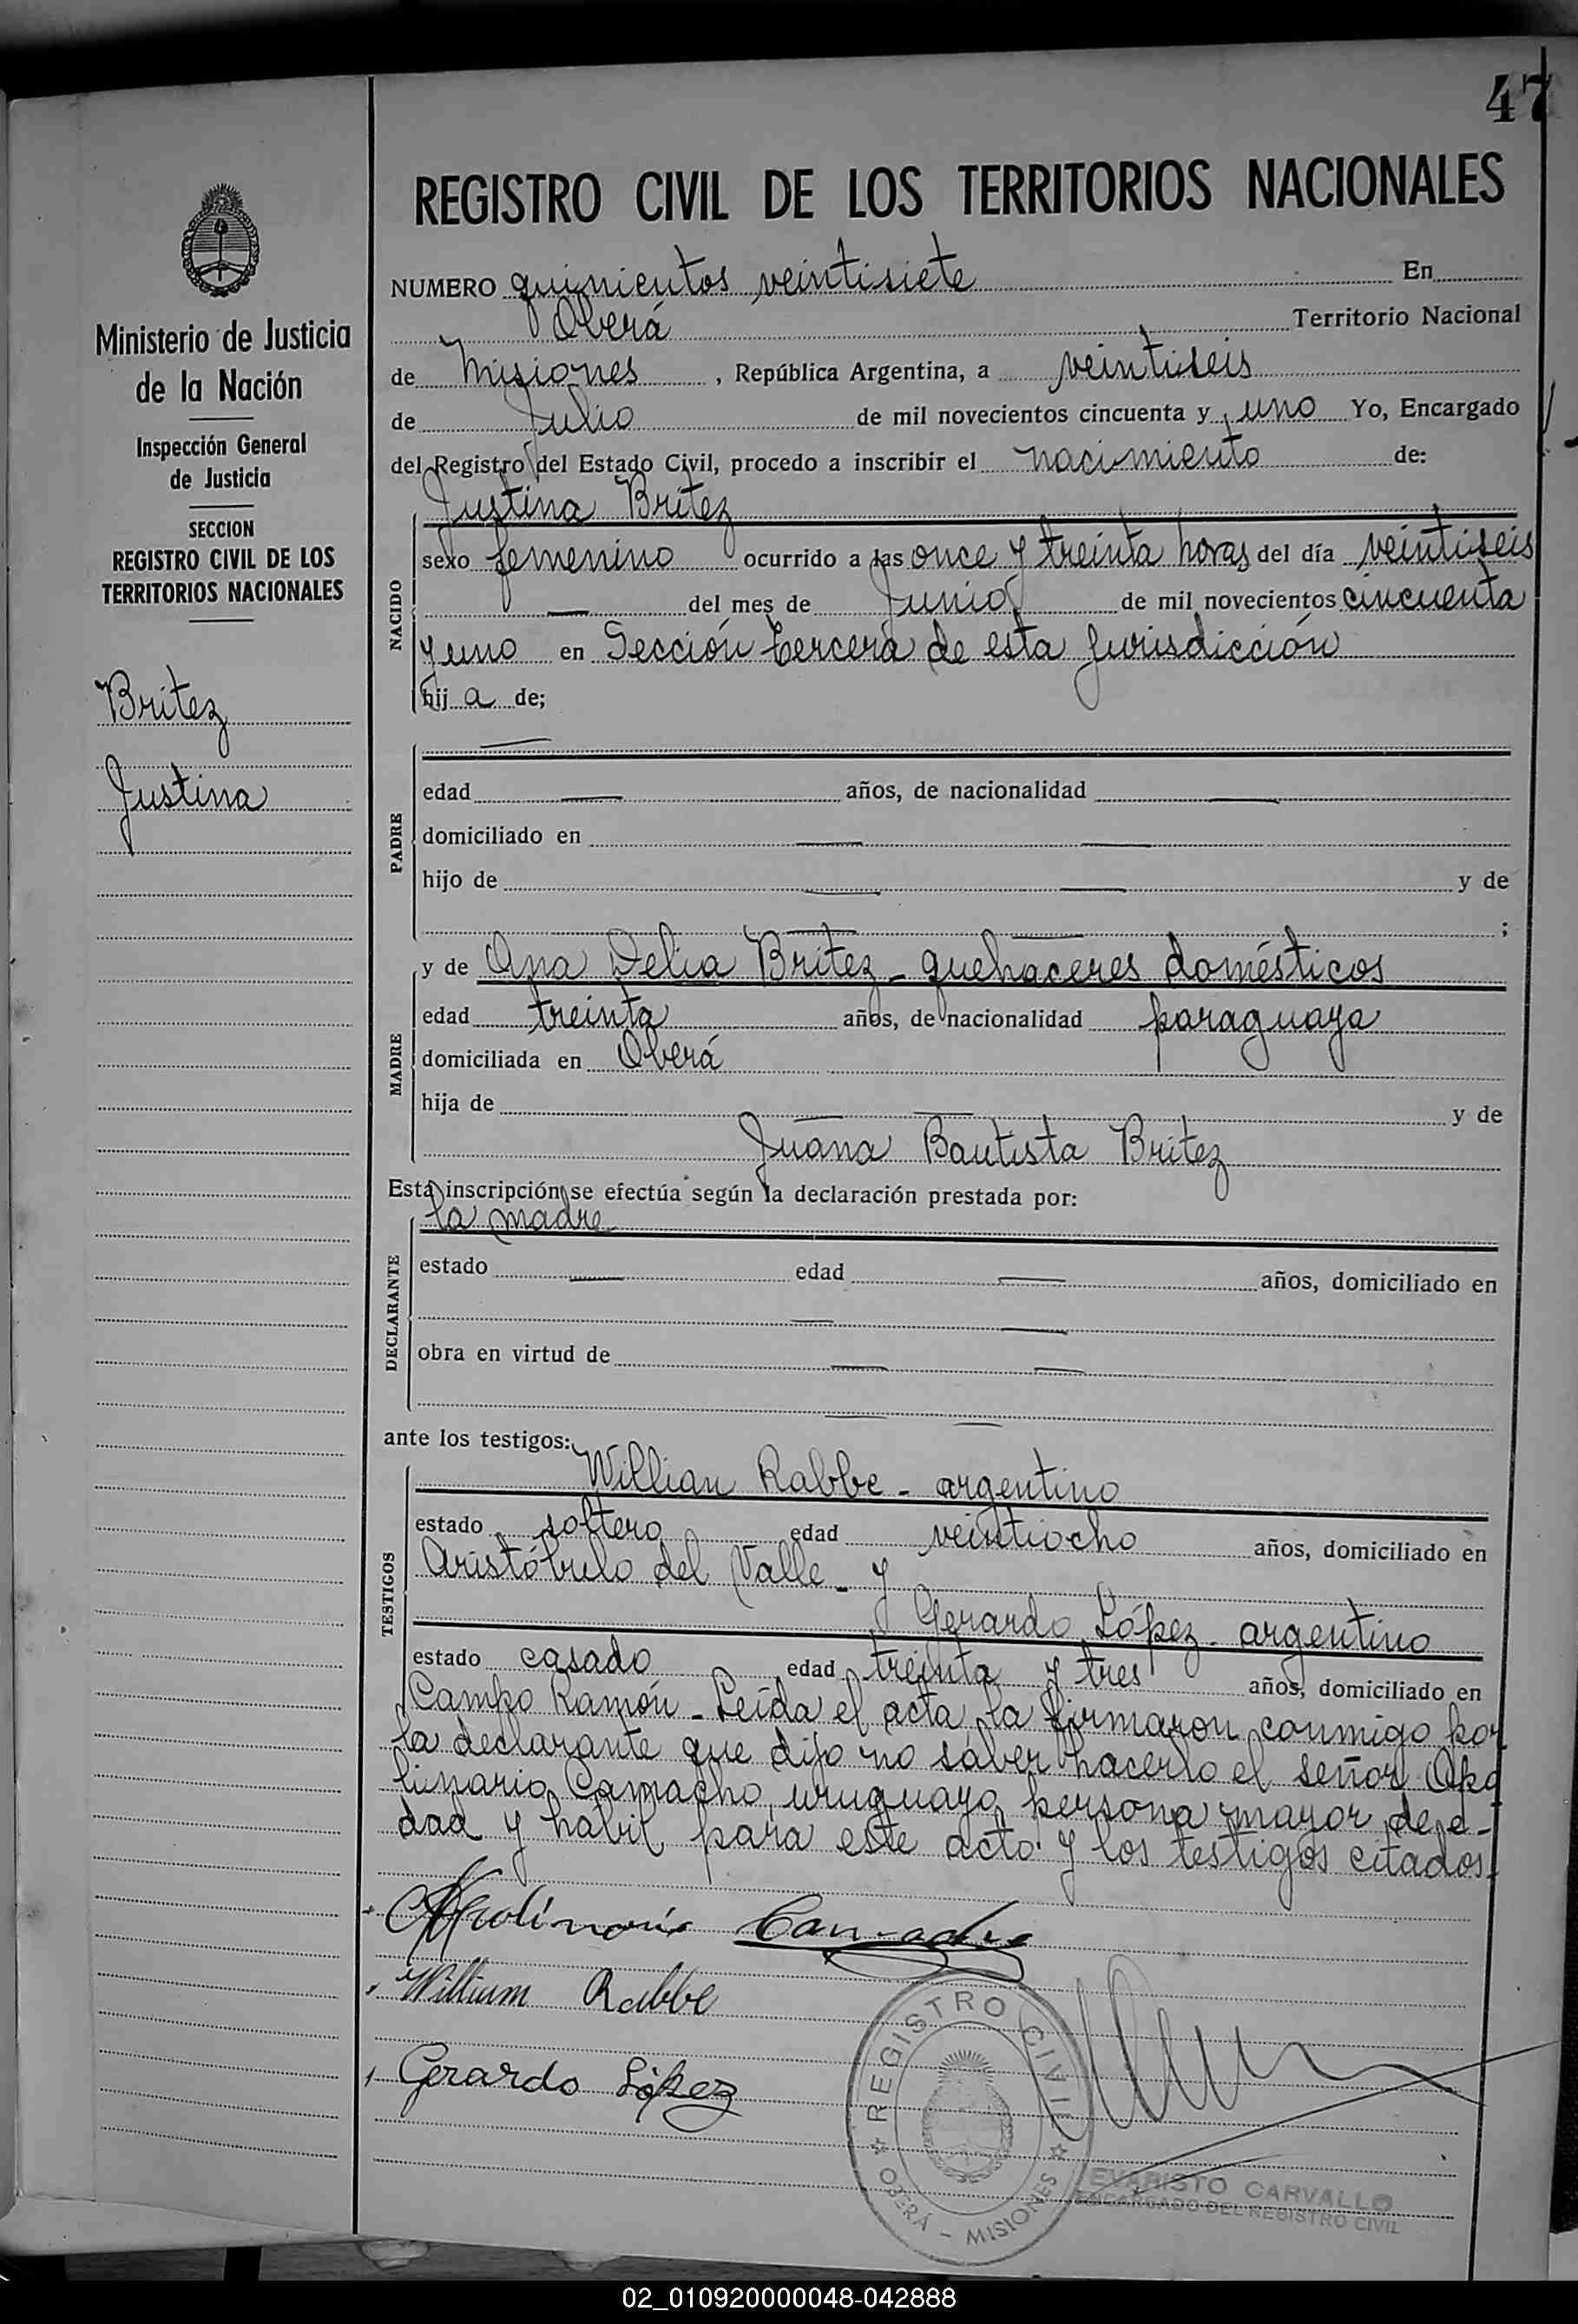 47
REGISTRO CIVIL DE LOS TERRITORIOS NACIONALES
Ministerio de Justicia
de la Nación
Inspección General
de Justicia
SECCION
REGISTRO CIVIL DE LOS
TERRITORIOS NACIONALES
Britez
Justina
NUMERO quinientos veintisiete En
Oberá Territorio Nacional
de Misiones , República Argentina, a veintiseis
de Julio de mil novecientos cincuenta y uno Yo, Encargado
del Registro del Estado Civil, procedo a inscribir el nacimiento de:
Justina Britez
NACIDO
sexo femenino ocurrido a las once y treinta horas del día veintiseis
— del mes de Junio de mil novecientos cincuenta
y uno en Sección tercera de esta jurisdicción
hij a de;
PADRE
—
edad — años, de nacionalidad —
domiciliado en — —
hijo de — — y de
— — ;
MADRE
y de Ana Delia Britez - quehaceres domésticos
edad treinta años, de nacionalidad paraguaya
domiciliada en Oberá
hija de — — y de
Juana Bautista Britez
Esta inscripción se efectúa según la declaración prestada por:
la madre
DECLARANTE
estado — edad — años, domiciliado en
— —
obra en virtud de — —
— —
ante los testigos:
TESTIGOS
Willian Rabbe - argentino
estado soltero edad veintiocho años, domiciliado en
Aristóbulo del Valle - y
Gerardo López - argentino
estado casado edad treinta y tres años, domiciliado en
Campo Ramón - Leída el acta, la firmaron conmigo por
la declarante que dijo no saber hacerlo el señor Apo
linario Camacho, uruguayo, persona mayor de e-
dad y habil para este acto y los testigos citados.
Apolinario Camacho
William Rabbe
Gerardo López
REGISTRO CIVIL
OBERÁ - MISIONES
EVARISTO CARVALLO
ENCARGADO DEL REGISTRO CIVIL
02_010920000048-042888